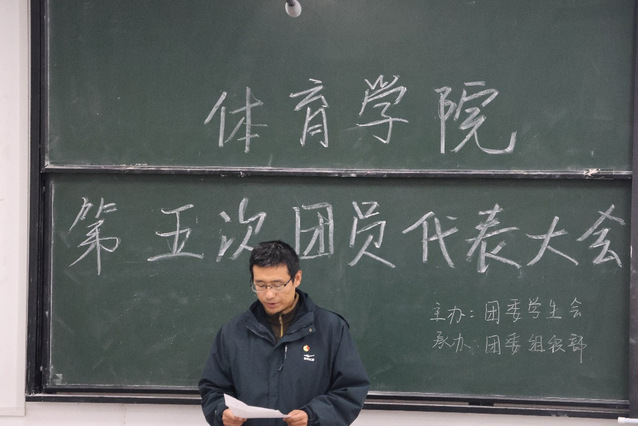 体育学院
第五次团员代表大会
主办：团委学生会
承办：团委组织部